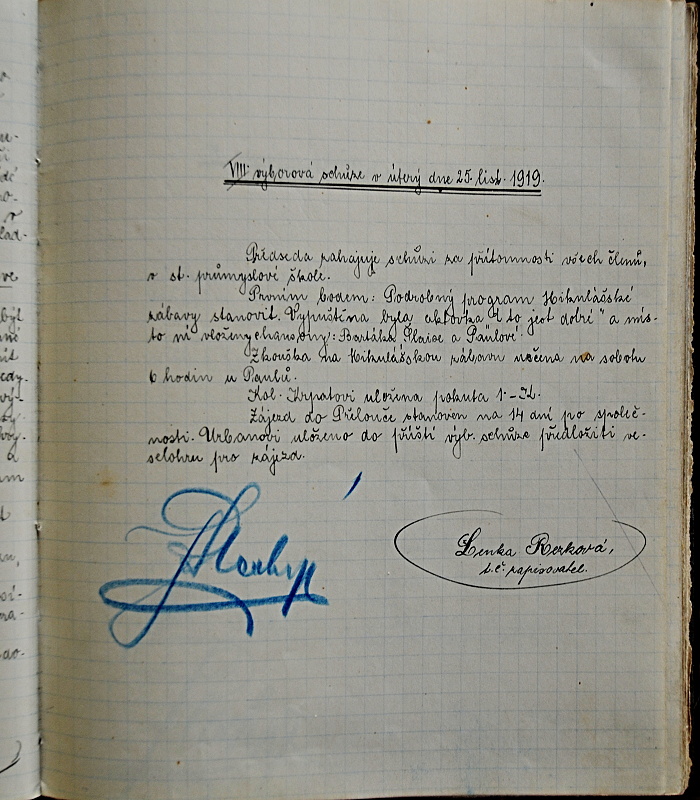 VIII. výborová schůze v úterý dne 25. list. 1919.
Předseda zahajuje schůzi za přítomnosti všech členů,
v st. průmyslové škole.
Prvním bodem: Podrobný program Mikulášské
zábavy stanovit. Vypuštěna byla aktovka „I to jest dobré" a mís-
to ní vloženy chansony: Bartáka, Plaise a Paulové.
Zkouška na Mikulášskou zábavu určena na sobotu
6 hodin u
Kol. Krpatovi uložena pokuta 1·-K.
Zájezd do Přelouče stanoven na 14 dní po společ-
nosti. Urbanovi uloženo do příští výb. schůze předložiti ve-
selohru pro zájezd.
Lenka
t. č. zapisovatel.